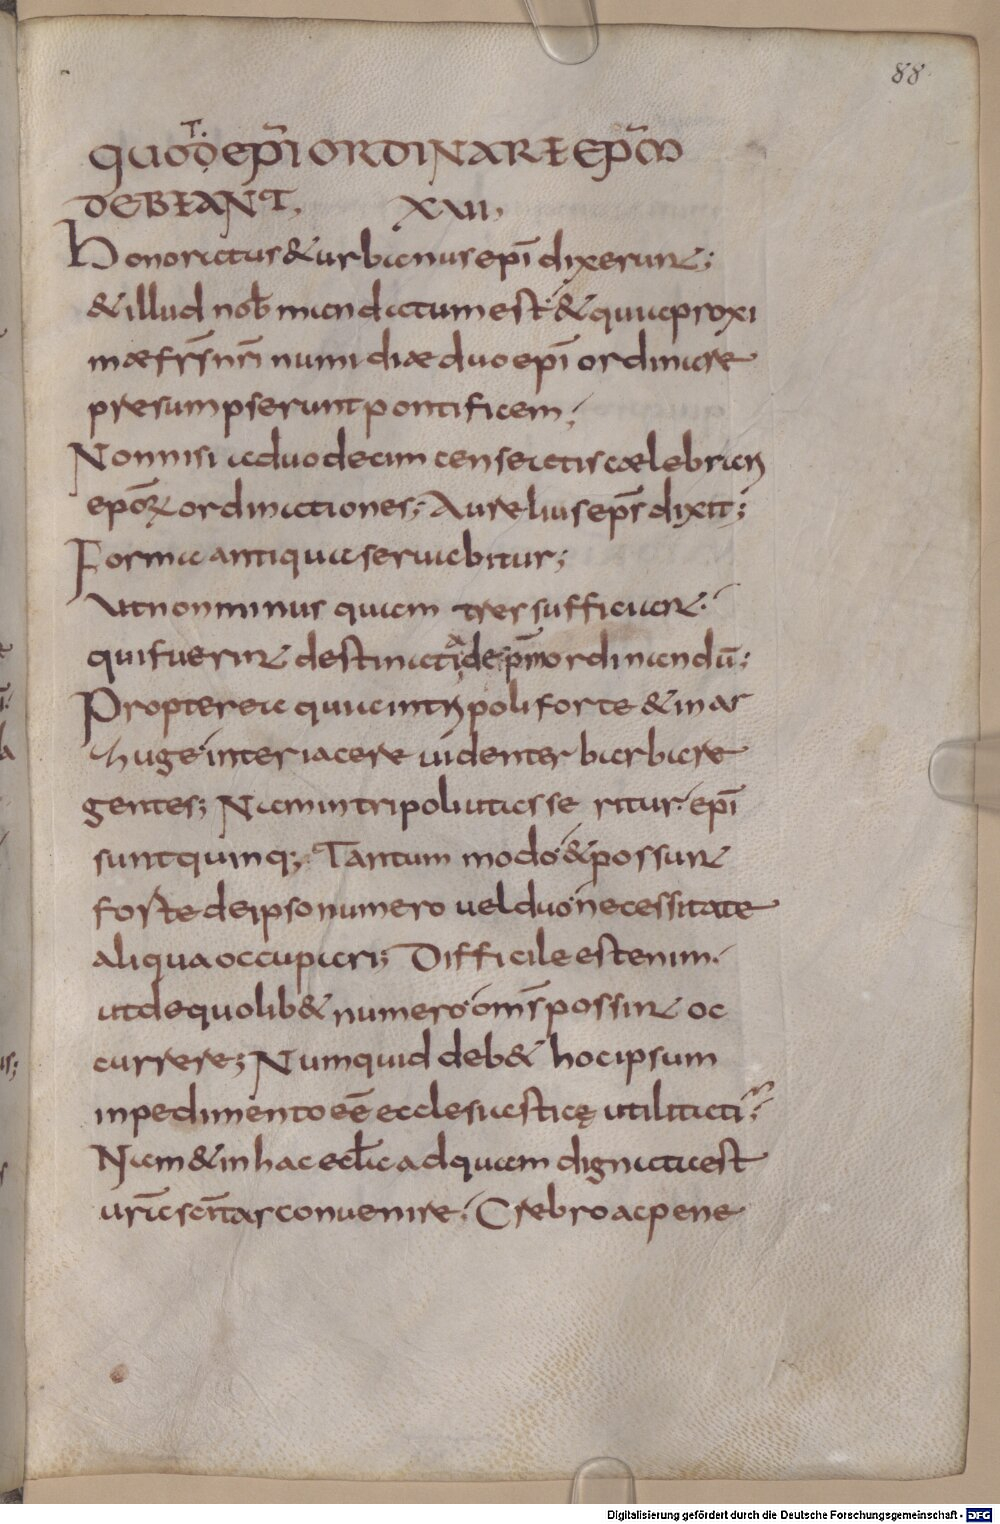 88
QUOT EP̄I ORDINARE EP̄M
DEBEANT, XXII,
Honoratus & urbanus ep̄i dixerunt;
& illud nob̄ mandatum est & quia proxi
mae fr̄s nr̄i numidiae duo ep̄i ordinare
presumpserunt pontificem;
Nonnisi a duodecim censeatis caelebrari
ep̄oꝝ ordinationes; Aurelius ep̄s dixit;
Forma antiqua servabitur;
Ut non minus quam tres sufficiant.
qui fuerint destinati ad ep̄m ordinandū;
Propterea quia in tripoli forte & in ar
zuge interiacere videntur barbare
gentes; Nam in tripoli ut asseritur ep̄i
sunt quinq; Tantum modo & possunt
forte de ipso numero vel duo necessitate
aliqua occupari; Difficile est enim.
ut de quolib& numero om̄s possint oc
currere; Numquid deb& hoc ipsum
inpedimento eē ecclesiasticę utilitati;
Nam & in hac eccl̄a ad quam dignata est
vr̄a sc̄itas convenire. Crebro ac pene
Digitalisierung gefördert durch die Deutsche Forschungsgemeinschaft - DFG